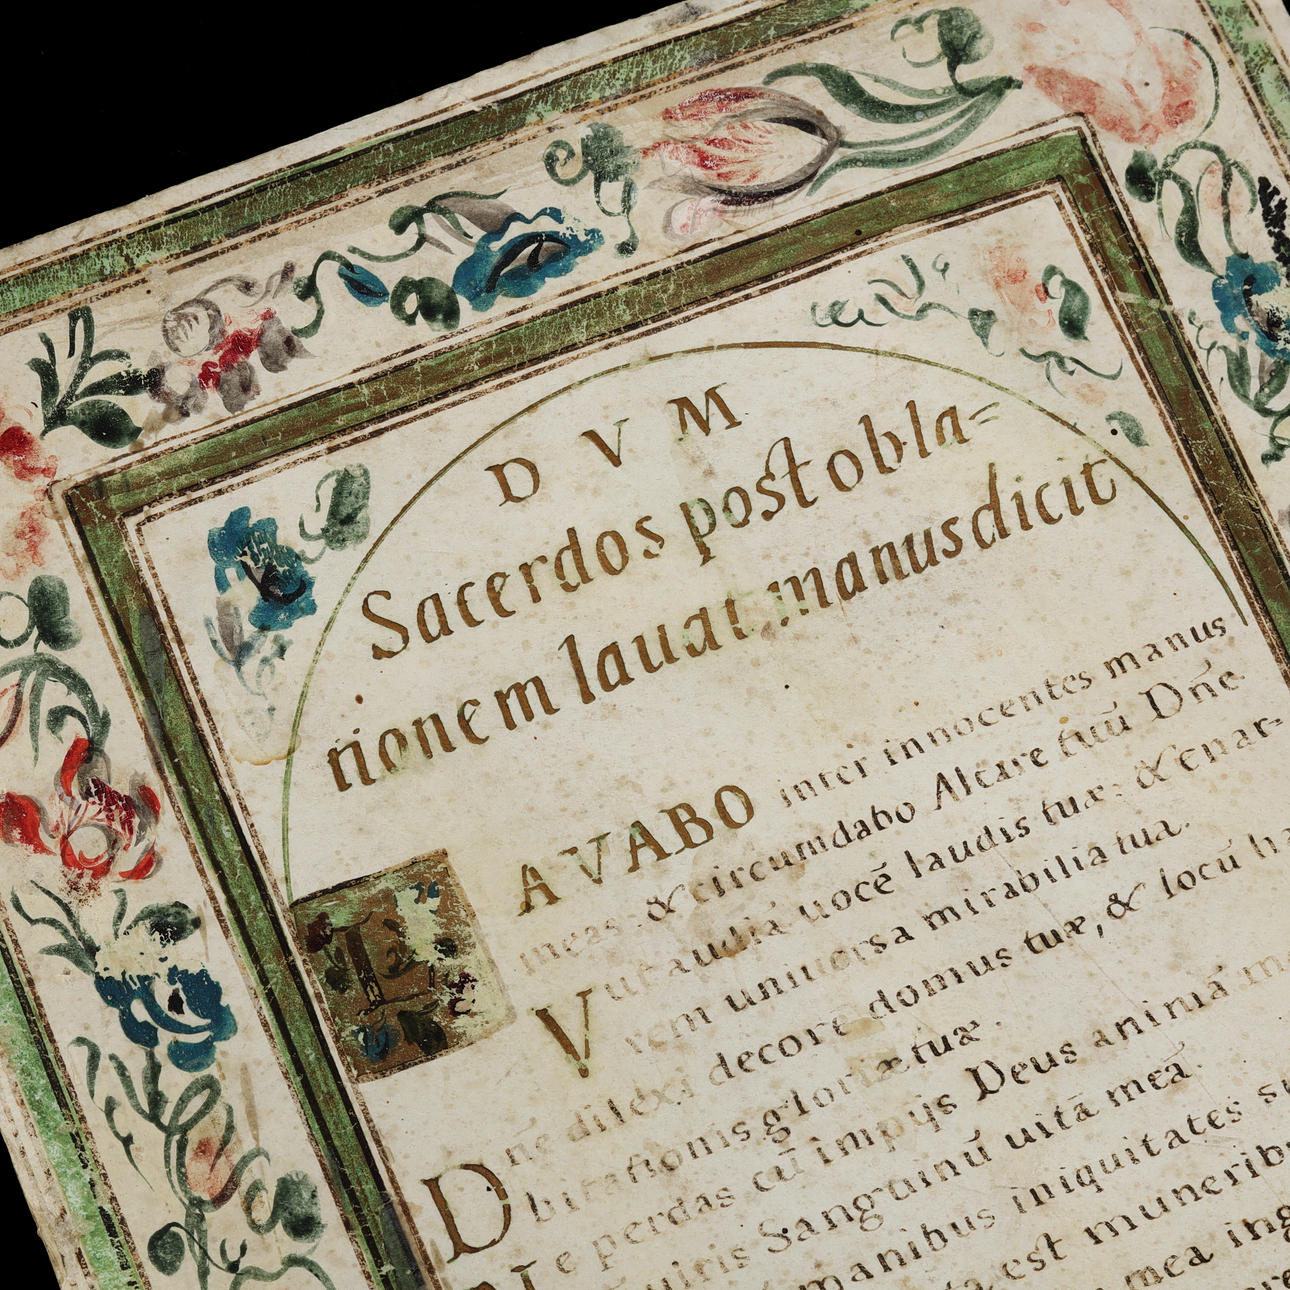 DVM
Sacerdos post obla=
tionem lauat manus dicit
LAVABO inter innocentes manus
meas: & circumdabo Altare tuū Dn̄e
Vt audiā uocē laudis tuæ: & enar-
rem uniuersa mirabilia tua.
Dn̄e dilexi decorē domus tuæ, & locū ha
bitationis gloriæ tuæ.
Ne perdas cū impijs Deus animā m
uiris Sanguinū uitā meā.
manibus iniquitates su
ta est munerib
mea ing